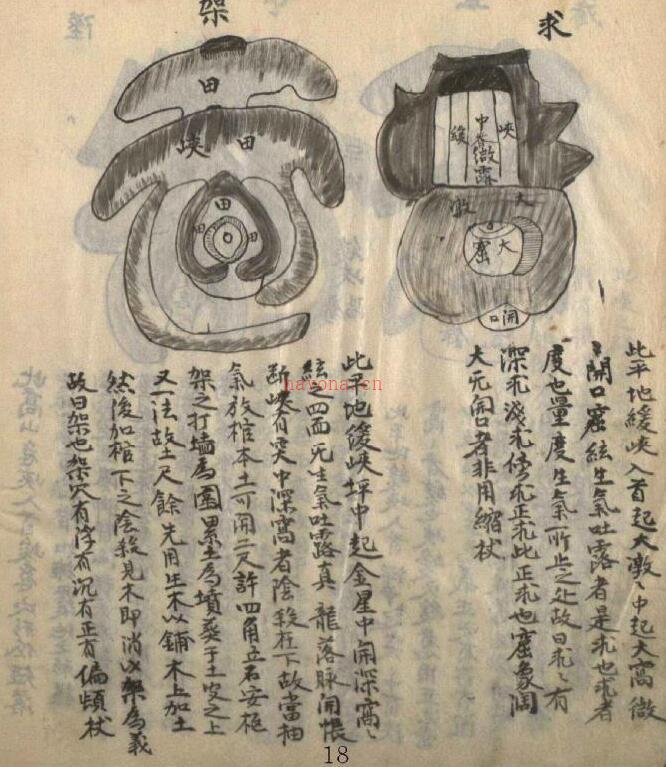 求
架
峽
中脊微露
緩
大
墩
大
窩
開口
田
田
峽
田
田
田
此平地緩峽入首起大墩墩中起大窩微
開口窩絃生氣吐露者是求也求者
度也量度生氣所止之处故曰求求有
深求淺求修求正求此正求也窩象闊
大无開口者非用縮杖
此平地緩峽坪中起金星中開深窩窩
絃之四面无生氣吐露真龍落脉開帳
断峽有突中深窩者陰殺在下故當抽
氣放棺本土可開二尺許四角立石安柩
架之打墙為圍累土為墳葬于土皮之上
又一法故土尺餘先用生木以鋪木上加土
然後加棺下之陰殺見木即消以架為義
故曰架也架穴有浮有沉有正有偏頓杖
hayona.cn
18